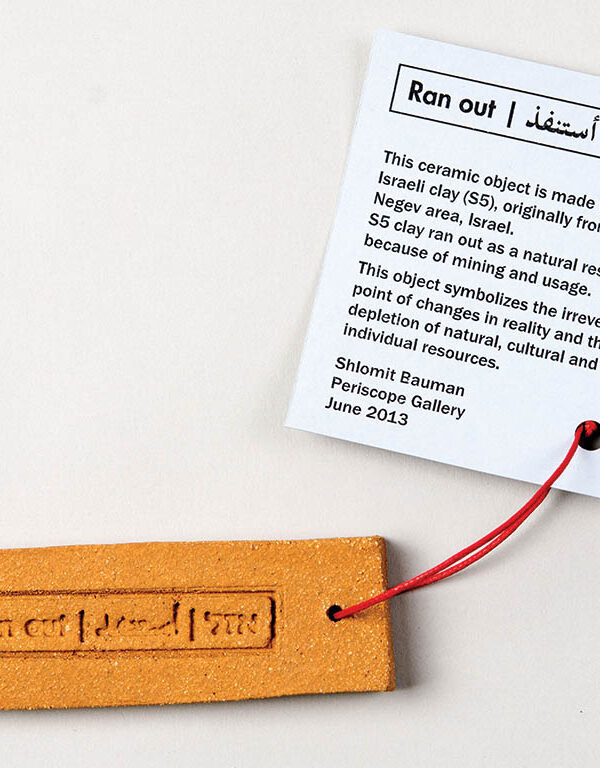 Ran out | أستنفذ
This ceramic object is made
Israeli clay (S5), originally
Negev area, Israel.
S5 clay ran out as a natural
because of mining and usage.
This object symbolizes the
point of changes in reality and
depletion of natural, cultural and
individual resources.
Shlomit Bauman
Periscope Gallery
June 2013
out | أستنفذ | אזל